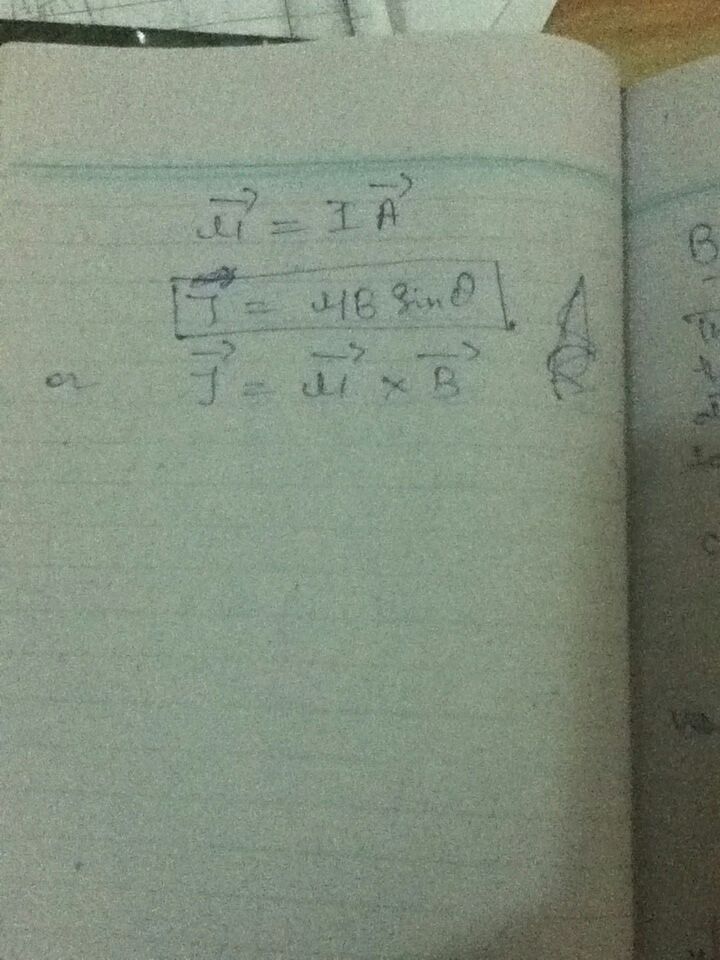 μ⃗ = I A⃗
τ = μB Sinθ
or τ⃗ = μ⃗ × B⃗
B